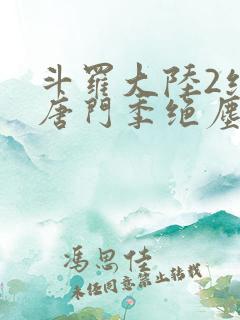 斗羅大陸2絕
唐門季绝塵
馮思佳
未任同意禁止轉載